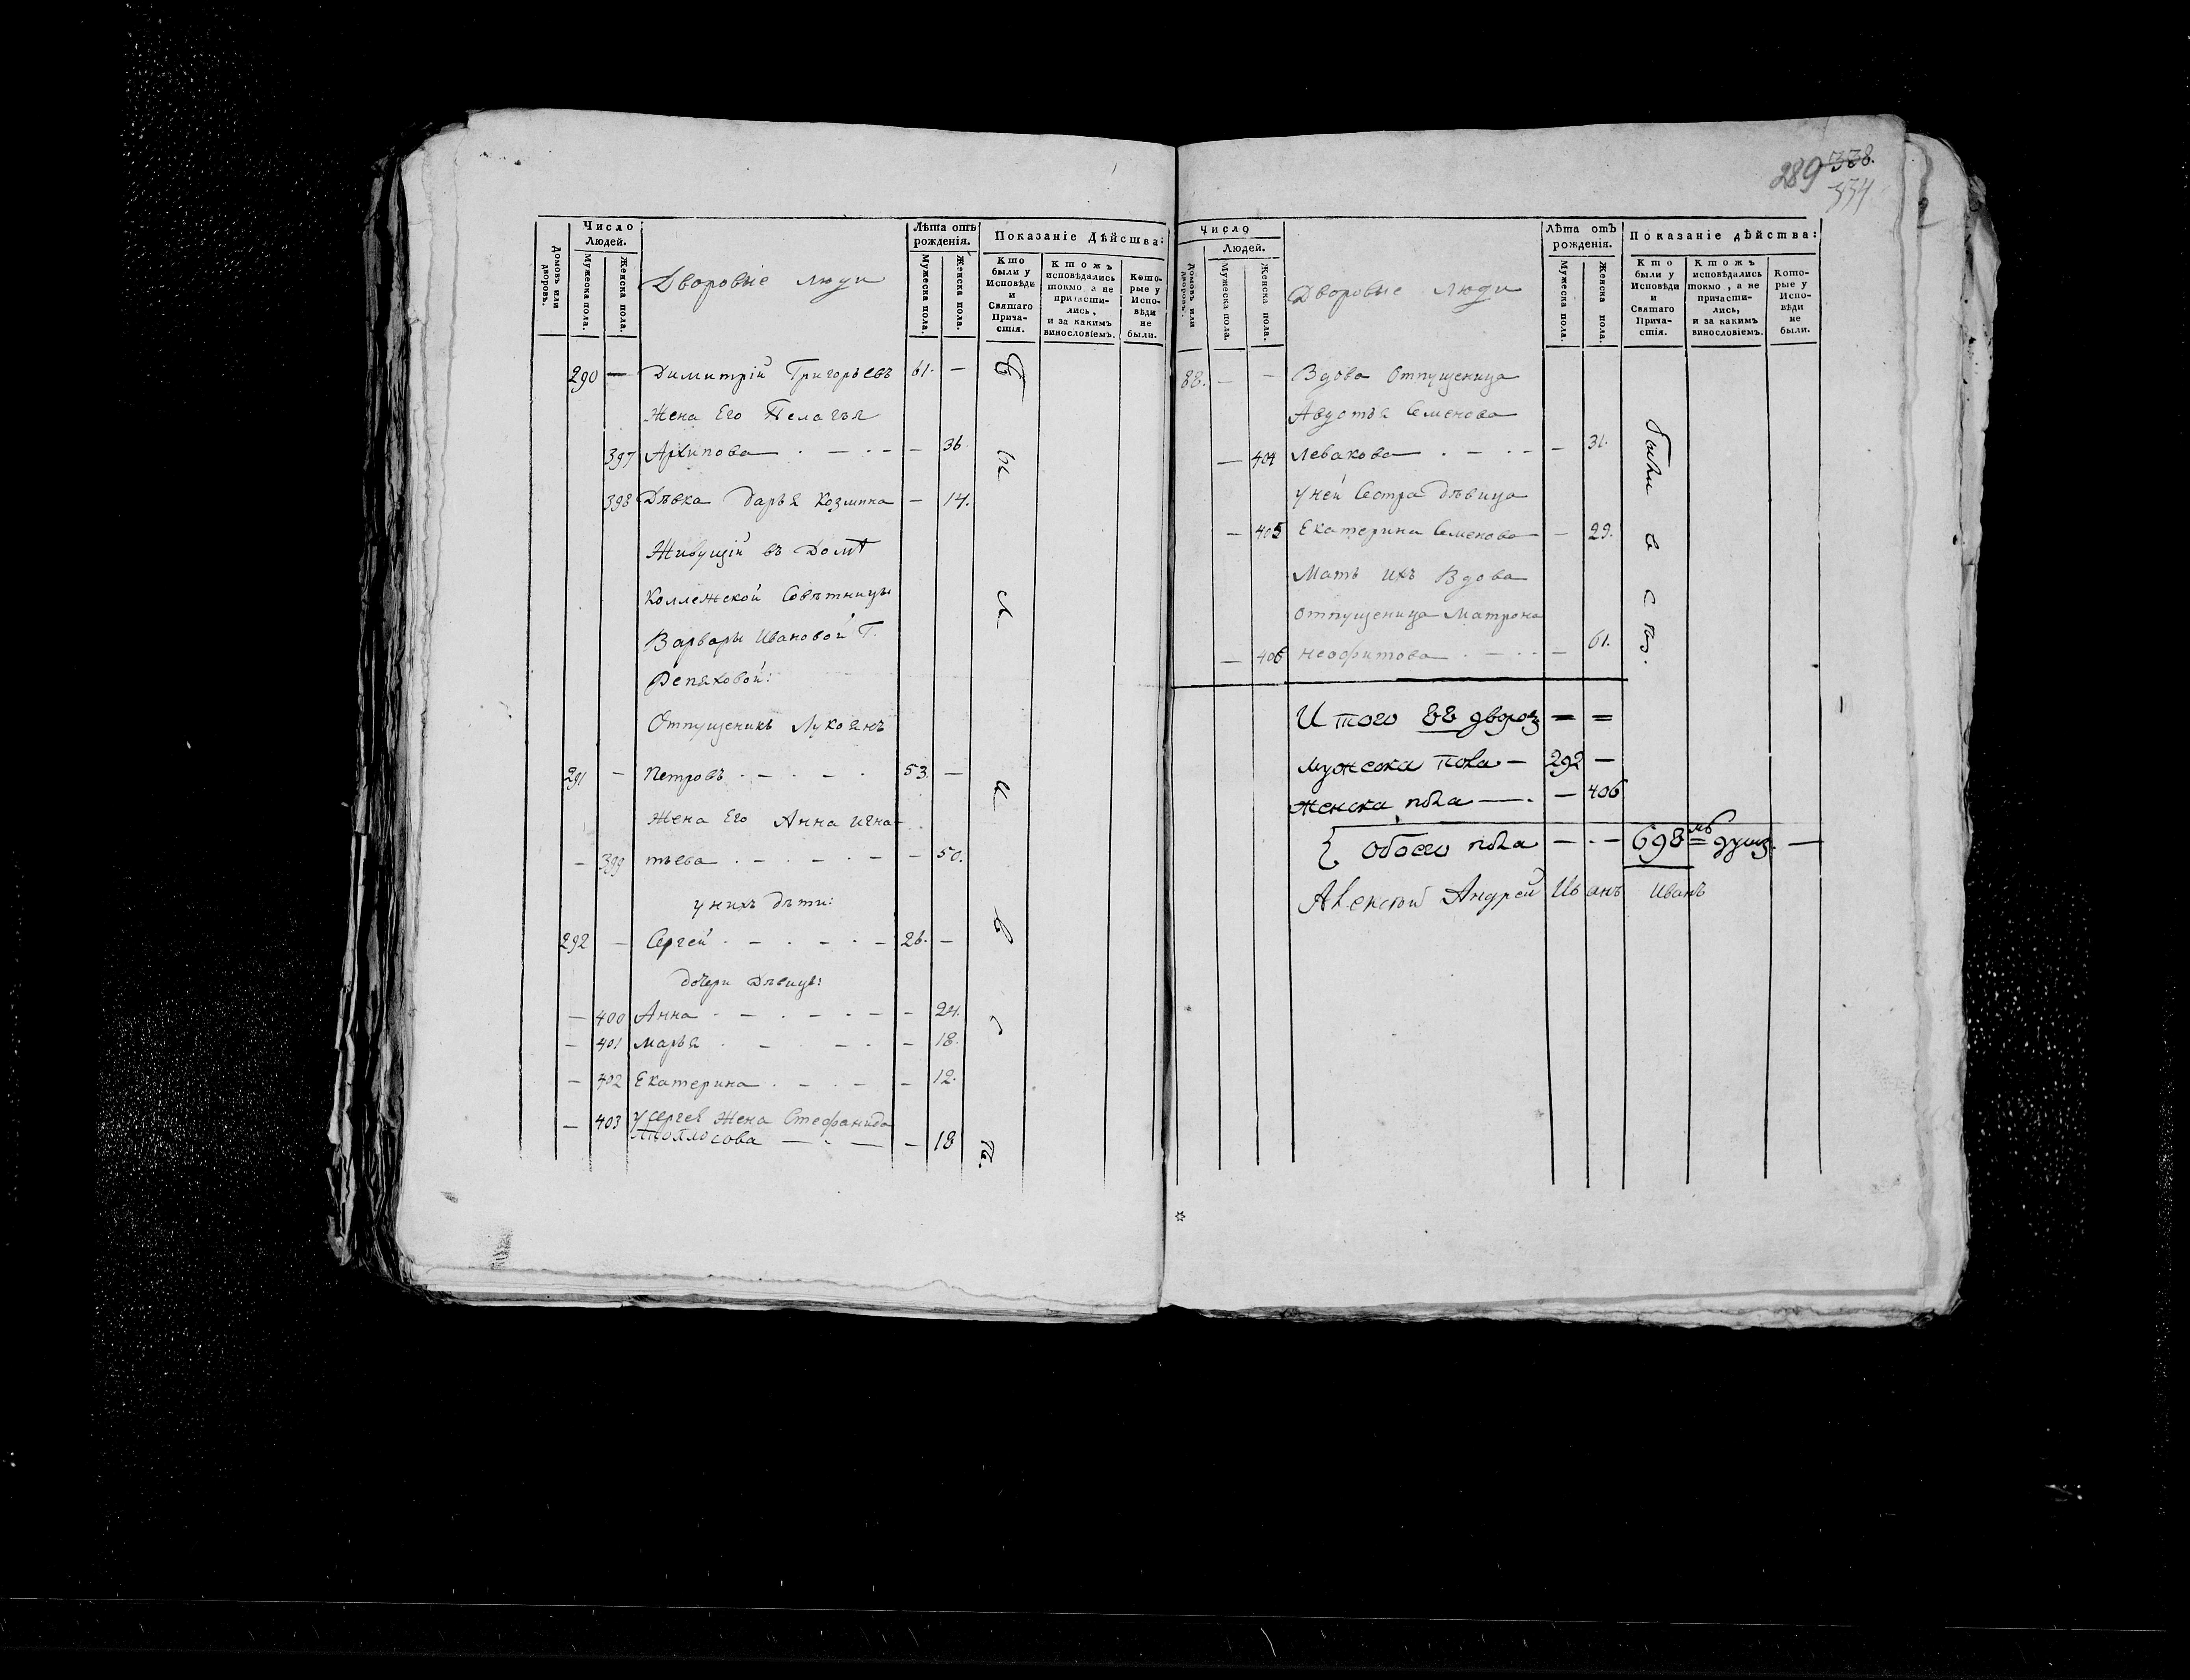 289 338.
334
Число
Людей.
Домовъ или дворовъ.
Мужеска пола.
Женска пола.
Дворовые люди
Лѣта отъ рожденія.
Мужеска пола.
Женска пола.
Показаніе Дѣйства:
Кто были у Исповѣди и Святаго Прича-стія.
Ктожъ исповѣдались токмо, а не причасти-лись, и за какимъ винословіемъ.
Кото-рые у Испо-вѣди не были.
290 — Димитрій Григорьевъ 61. —
Жена Его Пелагѣя
397 Архипова . — . — — 36
398 Дѣвка Дарья Козмина — 14.
Живущій въ Домѣ
Коллежской Совѣтницы
Варвары Ивановой Г.
Репяховой:
Отпущеникъ Лукоянъ
291 — Петровъ . — . — . 53. —
Жена Его Анна Игна-
— 399 тьева . — . — . — — 50.
у нихъ дѣти:
292 — Сергей . — . — . — 26. —
дочери Дѣвицы:
— 400 Анна . — . — . — — 24.
— 401 Марья . — . — . — 18.
— 402 Екатерина . — . — — 12.
— 403 У Сергея Жена Стефанида
— . — — 18
Были в с п.
Число
Людей.
Домовъ или дворовъ.
Мужеска пола.
Женска пола.
Дворовые люди
Лѣта отъ рожденія.
Мужеска пола.
Женска пола.
Показаніе дѣйства:
Кто были у Исповѣди и Святаго Прича-стія.
Ктожъ исповѣдались токмо, а не причасти-лись, и за какимъ винословіемъ.
Кото-рые у Испо-вѣди не были.
88. — — Вдова Отпущеница
Авдотья Семенова
— 404 Левакова . — . — — 31.
у ней Сестра Дѣвица
— 405 Екатерина Семенова — 29.
Мать ихъ Вдова
отпущеница Матрона
— 406 Неофитова . — . — — 61.
Были в с
Итого 88 дворовъ = =
Мужеска пола — 292 —
Женска пола — . — 406
обоего пола — . — 698 мь душъ. —
Андрей Иванъ Иванъ